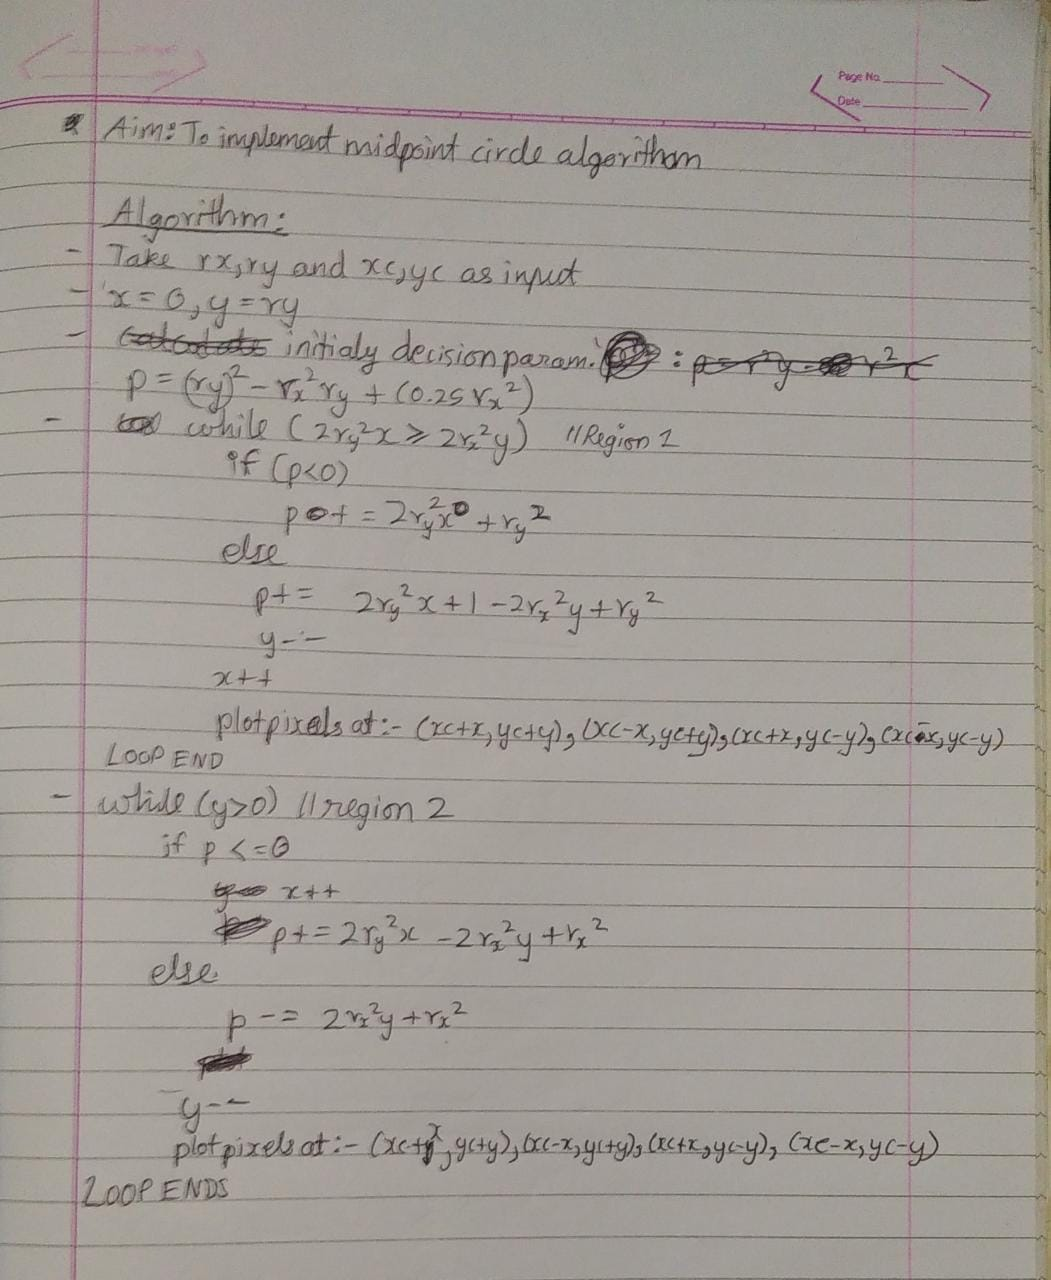 Page No.
Date
Aim: To implement midpoint circle algorithm
Algorithm:
- Take rx, ry and xc, yc as input
- x = 0, y = ry
- calculate initialy decision param. : p = ry - r²x
p = (ry)² - rx²ry + (0.25 rx²)
- while (2ry²x ≥ 2rx²y) //Region 1
if (p<0)
p+ = 2ry²x + ry²
else
p+ = 2ry²x + 1 - 2rx²y + ry²
y--
x++
plot pixels at:- (xc+x, yc+y), (xc-x, yc+y), (xc+x, yc-y), (xc-x, yc-y)
LOOP END
- while (y>0) //region 2
if p <= 0
x++
p+ = 2ry²x - 2rx²y + rx²
else
p -= 2rx²y + rx²
y--
plot pixels at:- (xc+x, yc+y), (xc-x, yc+y), (xc+x, yc-y), (xc-x, yc-y)
LOOP ENDS